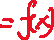 = f(x)